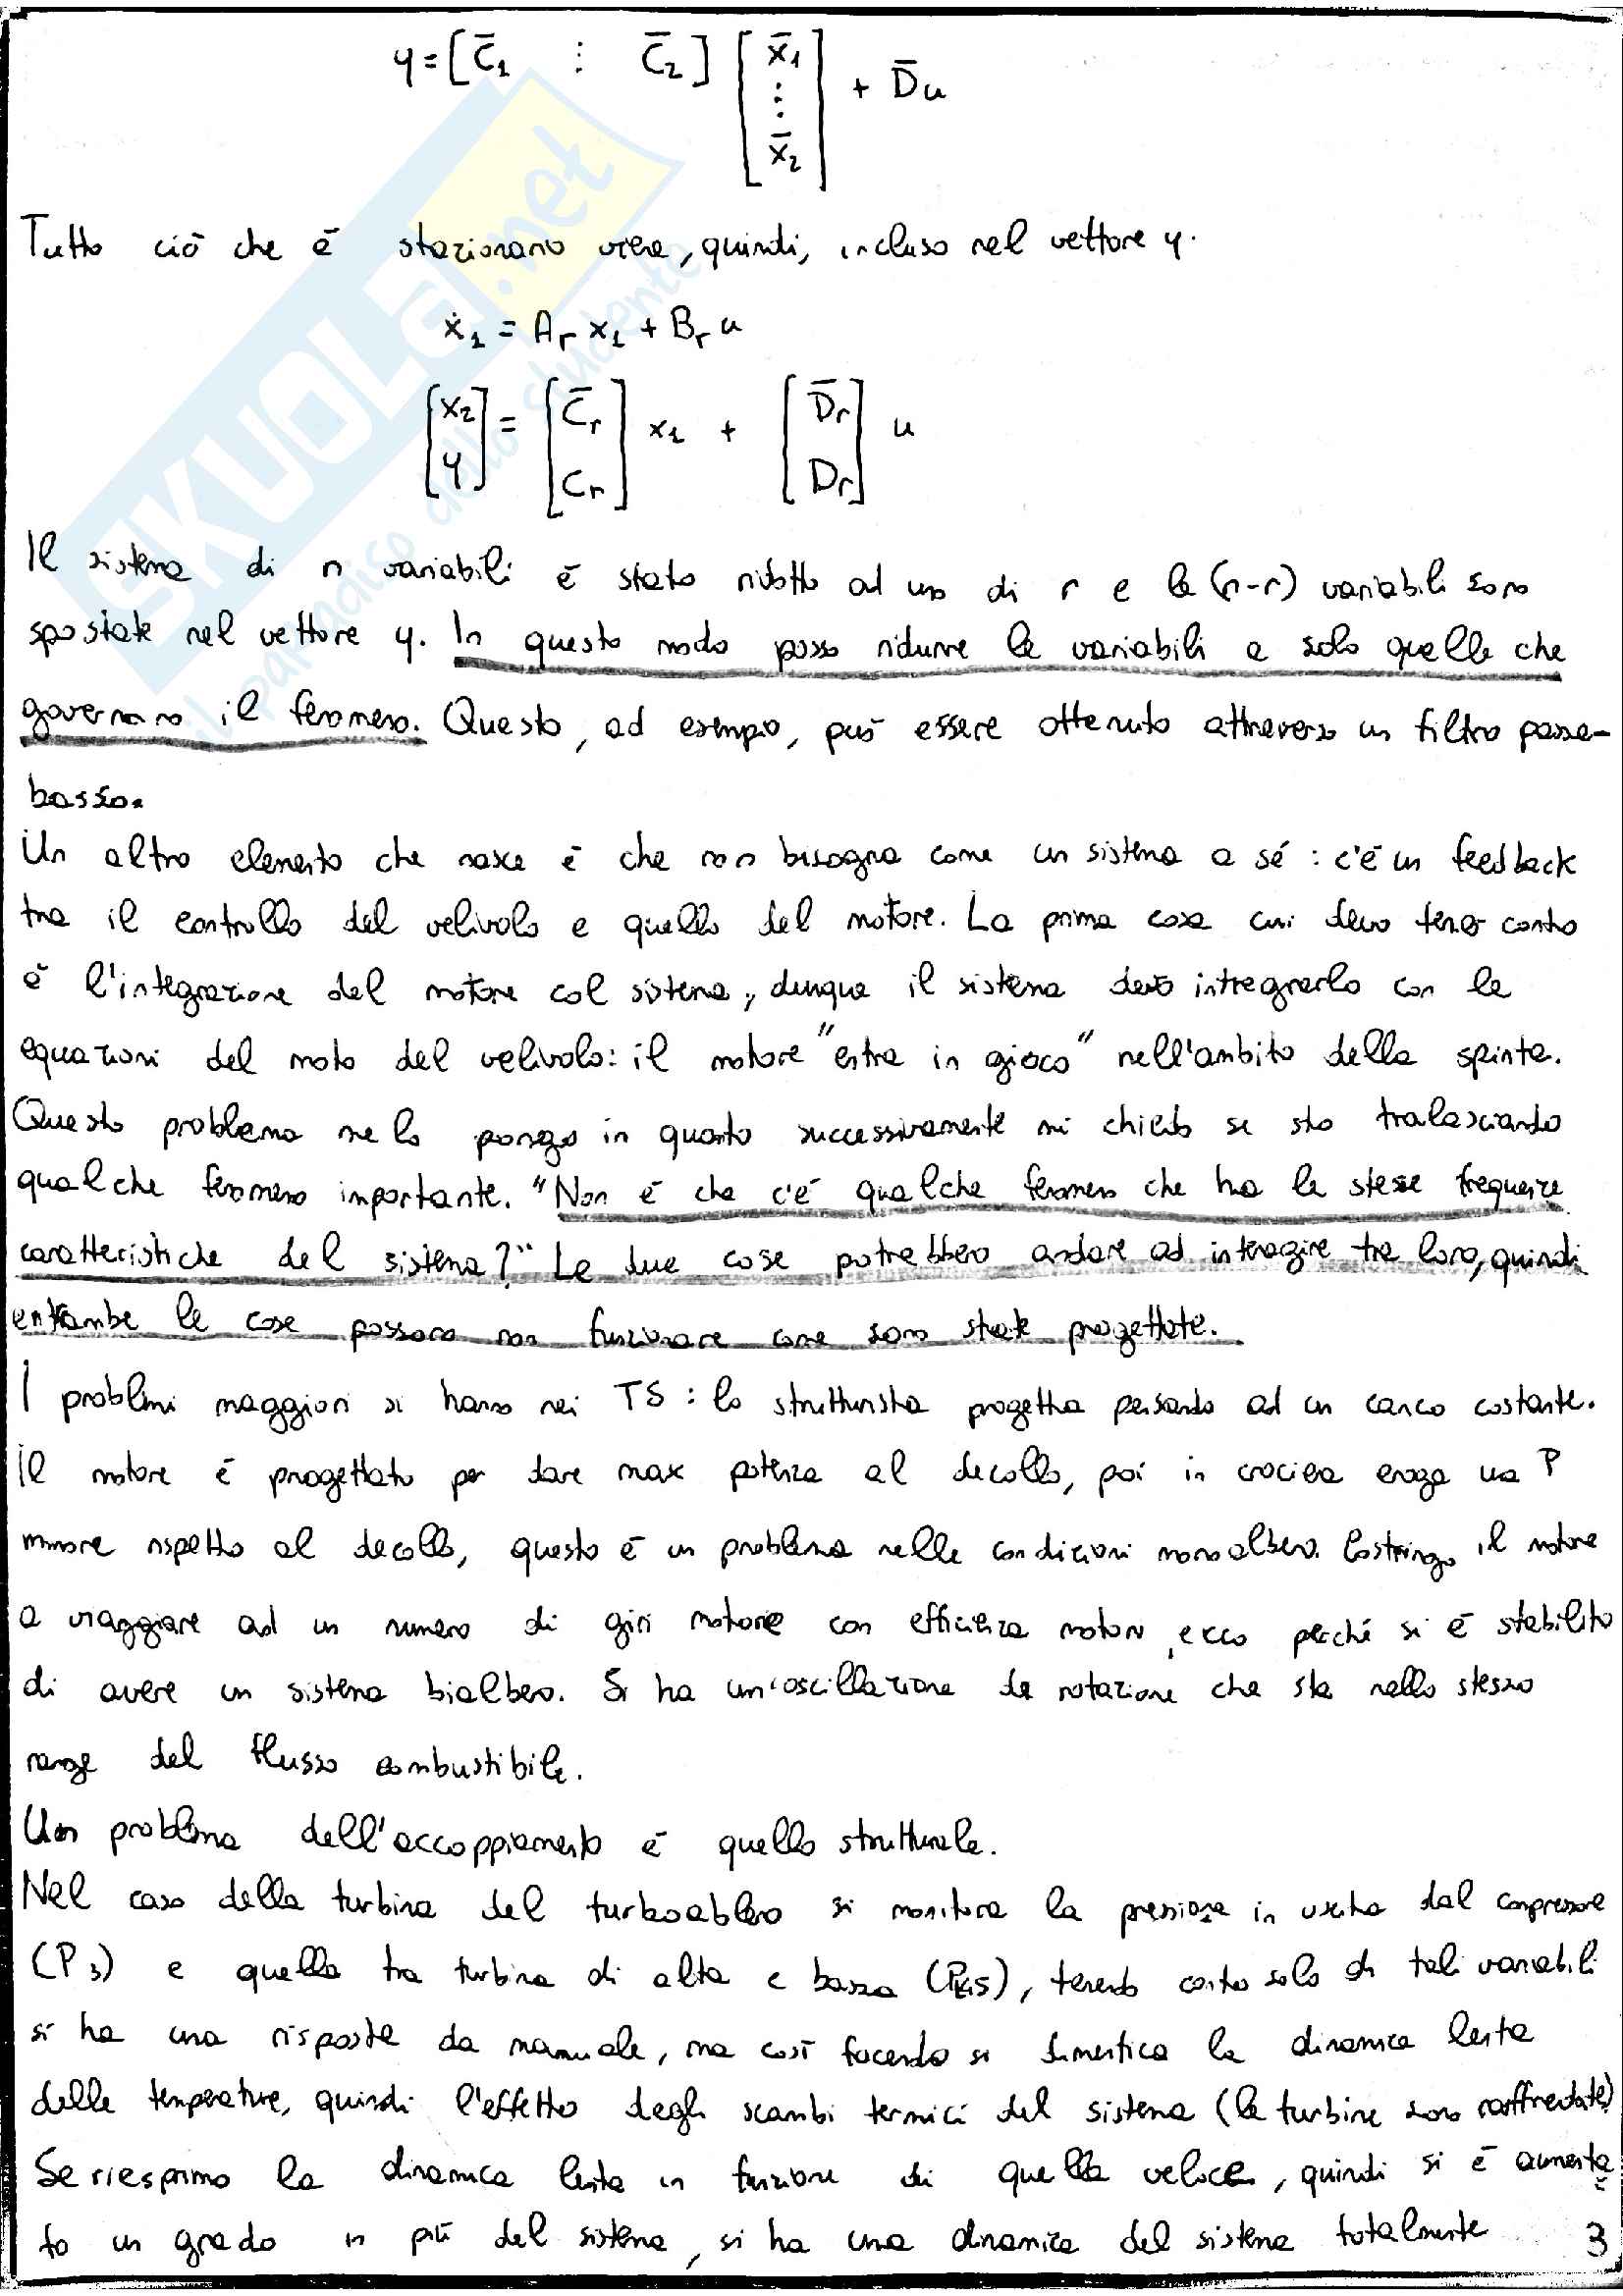 y = [C̄₁ ⋮ C̄₂] [x̄₁ ⋮ x̄₂] + D̄u
Tutto ciò che è stazionario viene, quindi, incluso nel vettore y.
ẋ₁ = Aᵣ x₁ + Bᵣ u
[x₂ y] = [C̄ᵣ Cᵣ] x₁ + [D̄ᵣ Dᵣ] u
Il sistema di n variabili è stato ridotto ad uno di r e le (n-r) variabili sono
spostate nel vettore y. In questo modo posso ridurre le variabili a solo quelle che
governano il fenomeno. Questo, ad esempio, può essere ottenuto attraverso un filtro passa-
basso.
Un altro elemento che nasce è che non bisogna come un sistema a sé : c'è un feedback
tra il controllo del velivolo e quello del motore. La prima cosa cui devo tener conto
è l'integrazione del motore col sistema, dunque il sistema devo integrarlo con le
equazioni del moto del velivolo: il motore "entra in gioco" nell'ambito della spinta.
Questo problema me lo pongo in quanto successivamente mi chiedo se sto tralasciando
qualche fenomeno importante. "Non è che c'è qualche fenomeno che ha le stesse frequenze
caratteristiche del sistema?" Le due cose potrebbero andare ad interagire tra loro, quindi
entrambe le cose possono non funzionare come sono state progettate.
I problemi maggiori si hanno nei TS : lo strutturista progetta pensando ad un carico costante.
Il motore è progettato per dare max potenza al decollo, poi in crociera eroga una P
minore rispetto al decollo, questo è un problema nelle condizioni monoalbero. Costringo il motore
a viaggiare ad un numero di giri motore con efficienza minore, ecco perché si è stabilito
di avere un sistema bialbero. Si ha un'oscillazione da rotazione che sta nello stesso
range del flusso combustibile.
Un problema dell'accoppiamento è quello strutturale.
Nel caso della turbina del turboalbero si monitora la pressione in uscita dal compressore
(P₃) e quella tra turbina di alta e bassa (P₄₅), tenendo conto solo di tali variabili
si ha una risposta da manuale, ma così facendo si dimentica la dinamica lenta
delle temperature, quindi l'effetto degli scambi termici del sistema (le turbine sono raffreddate)
Se riesprimo la dinamica lenta in funzione di quella veloce, quindi si è aumenta
to un grado in più del sistema, si ha una dinamica del sistema totalmente
3
SKUOLA.net
il paradiso dello studente